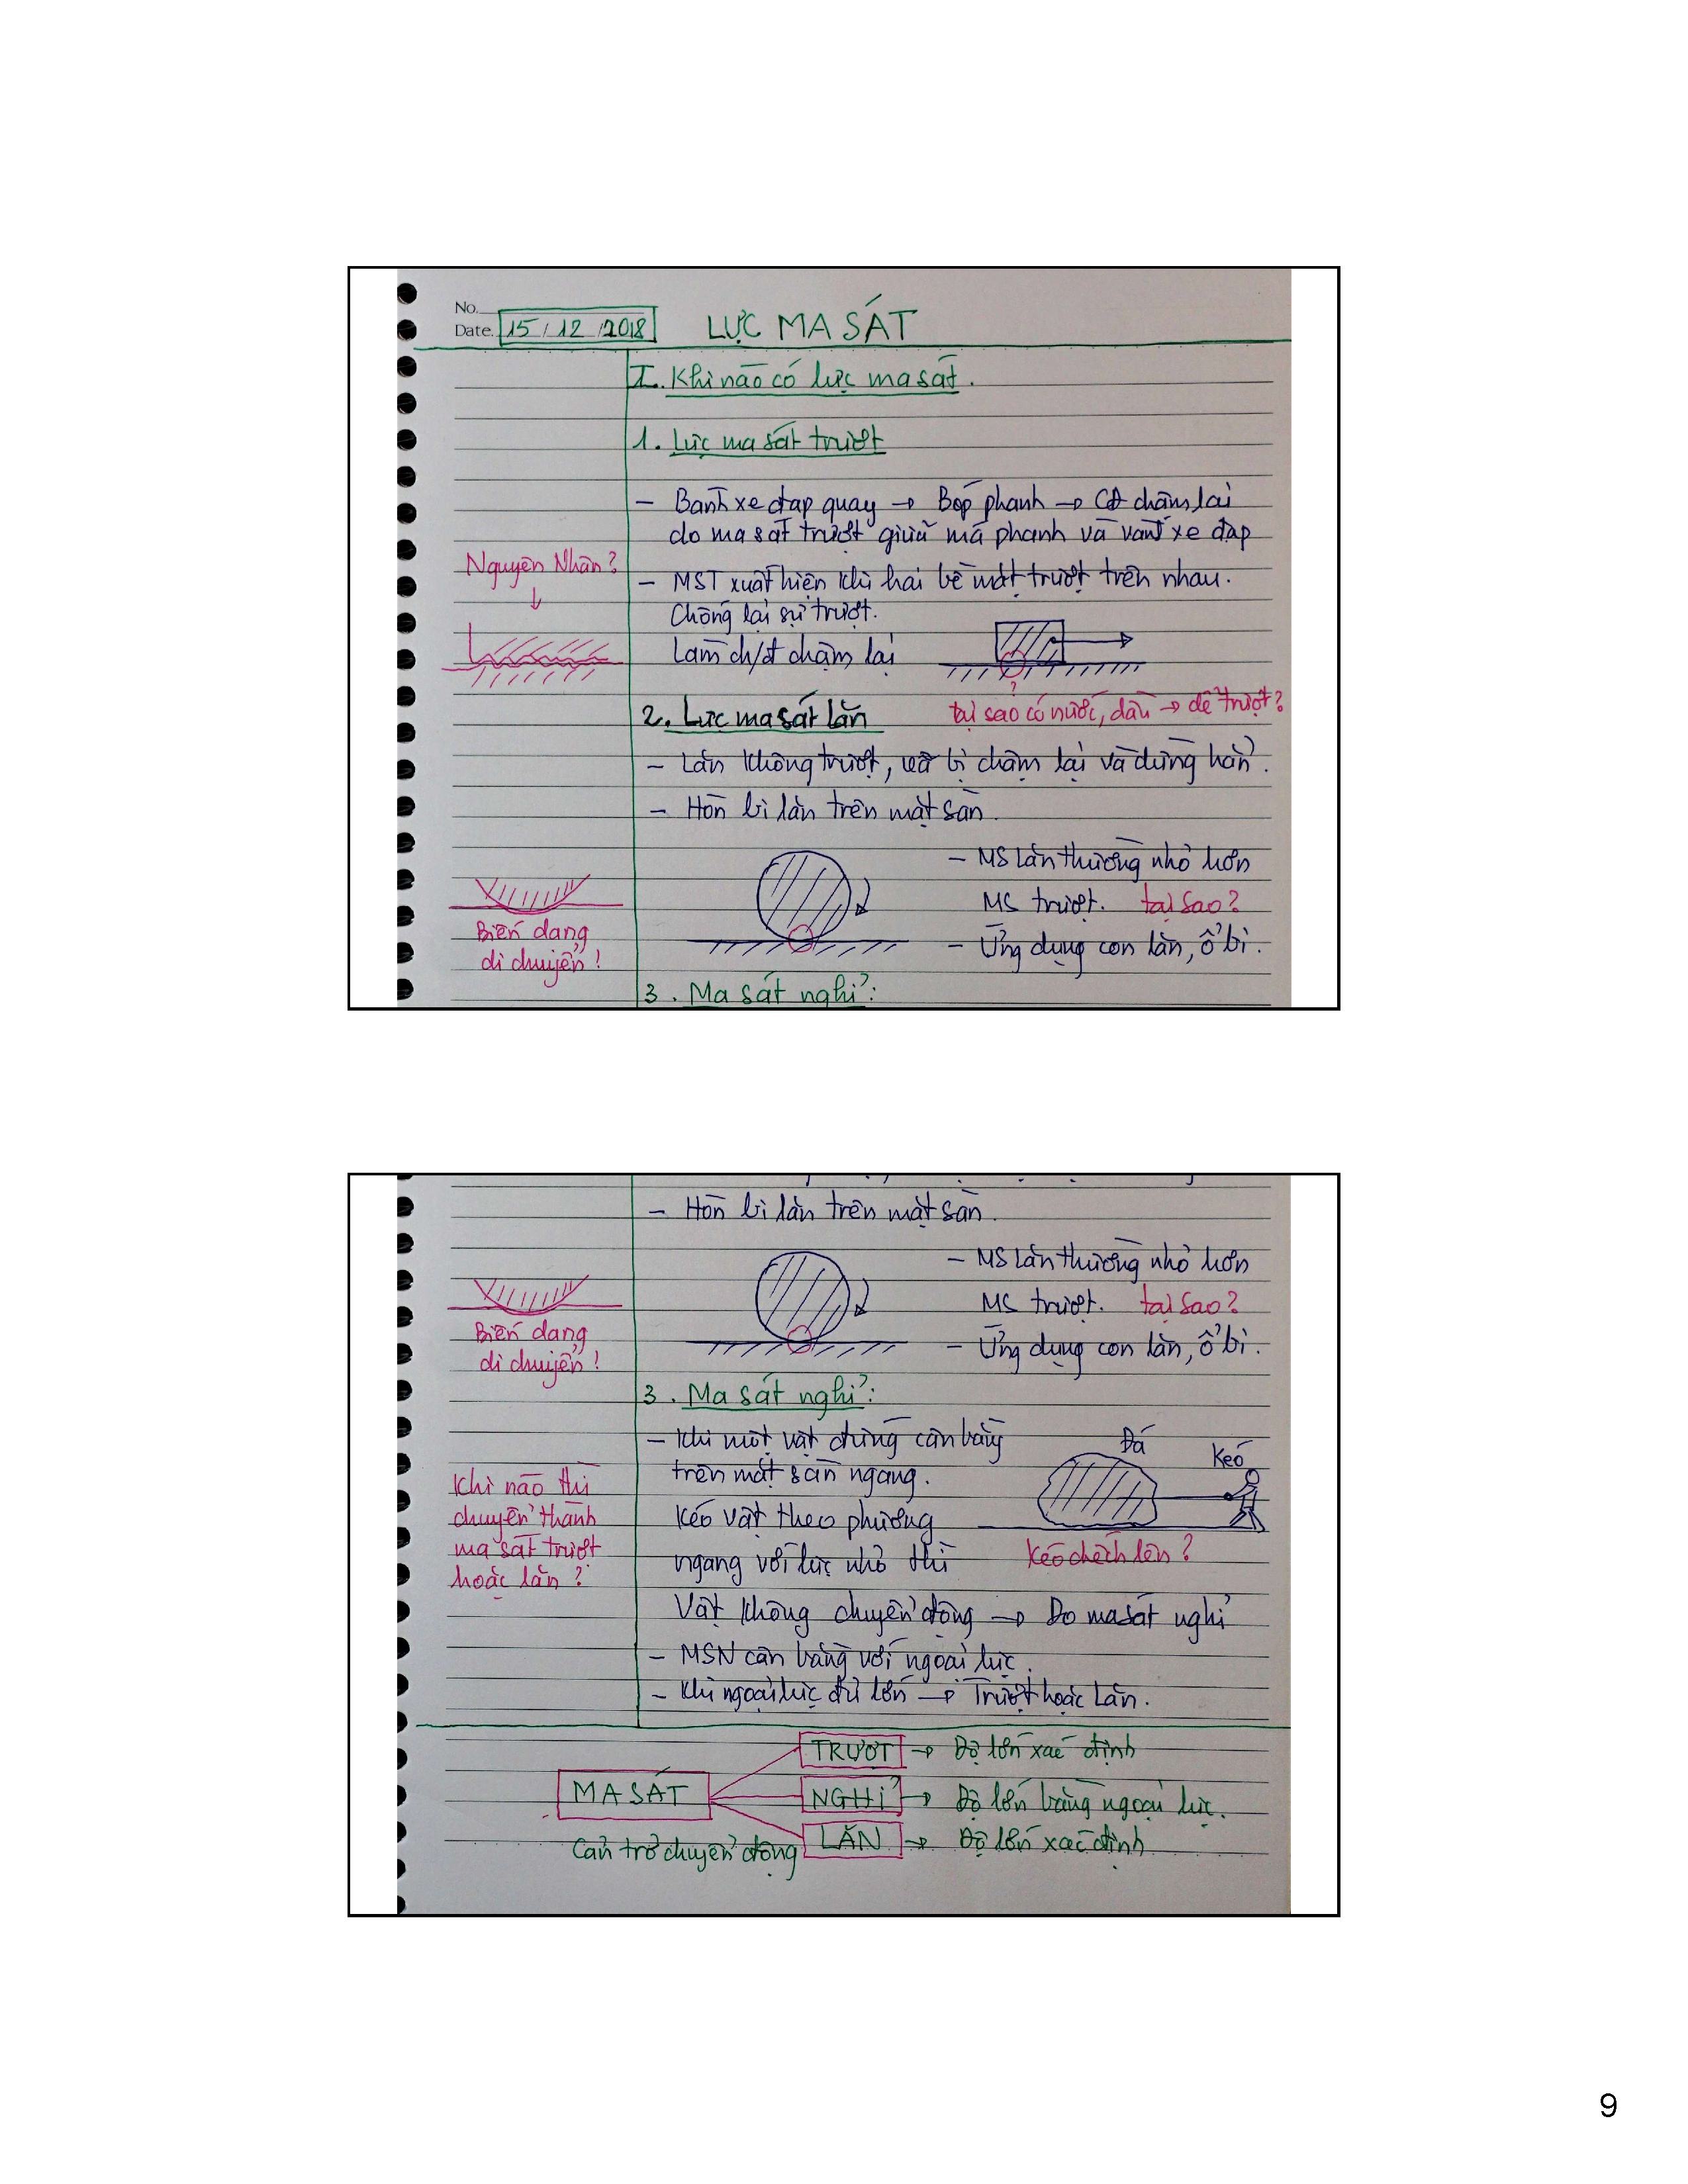 No.
Date. 15 / 12 / 2018
LỰC MA SÁT
I. Khi nào có lực ma sát.
1. Lực ma sát trượt
– Bánh xe đạp quay → Bóp phanh → CĐ chậm lại
do ma sát trượt giữa má phanh và vành xe đạp
Nguyên Nhân?
– MST xuất hiện khi hai bề mặt trượt trên nhau.
Chống lại sự trượt.
Làm ch/đ chậm lại
?
2. Lực ma sát lăn
tại sao có nước, dầu → dễ trượt?
– Lăn không trượt, và bị chậm lại và dừng hẳn.
– Hòn bi lăn trên mặt sàn.
– MS lăn thường nhỏ hơn
MS trượt. tại sao?
– Ứng dụng con lăn, ổ bi.
Biến dạng
di chuyển!
3. Ma sát nghỉ:
– Hòn bi lăn trên mặt sàn.
– MS lăn thường nhỏ hơn
MS trượt. tại sao?
– Ứng dụng con lăn, ổ bi.
Biến dạng
di chuyển!
3. Ma sát nghỉ:
– Khi một vật đứng cân bằng
trên mặt sàn ngang.
Kéo vật theo phương
ngang với lực nhỏ thì
Vật không chuyển động → Do ma sát nghỉ
Đá
Kéo
Kéo chếch lên?
Khi nào thì
chuyển thành
ma sát trượt
hoặc lăn?
– MSN cân bằng với ngoại lực.
– Khi ngoại lực đủ lớn → Trượt hoặc Lăn.
TRƯỢT → Độ lớn xác định
MA SÁT
NGHỈ → Độ lớn bằng ngoại lực.
LĂN → Độ lớn xác định
Cản trở chuyển động
9